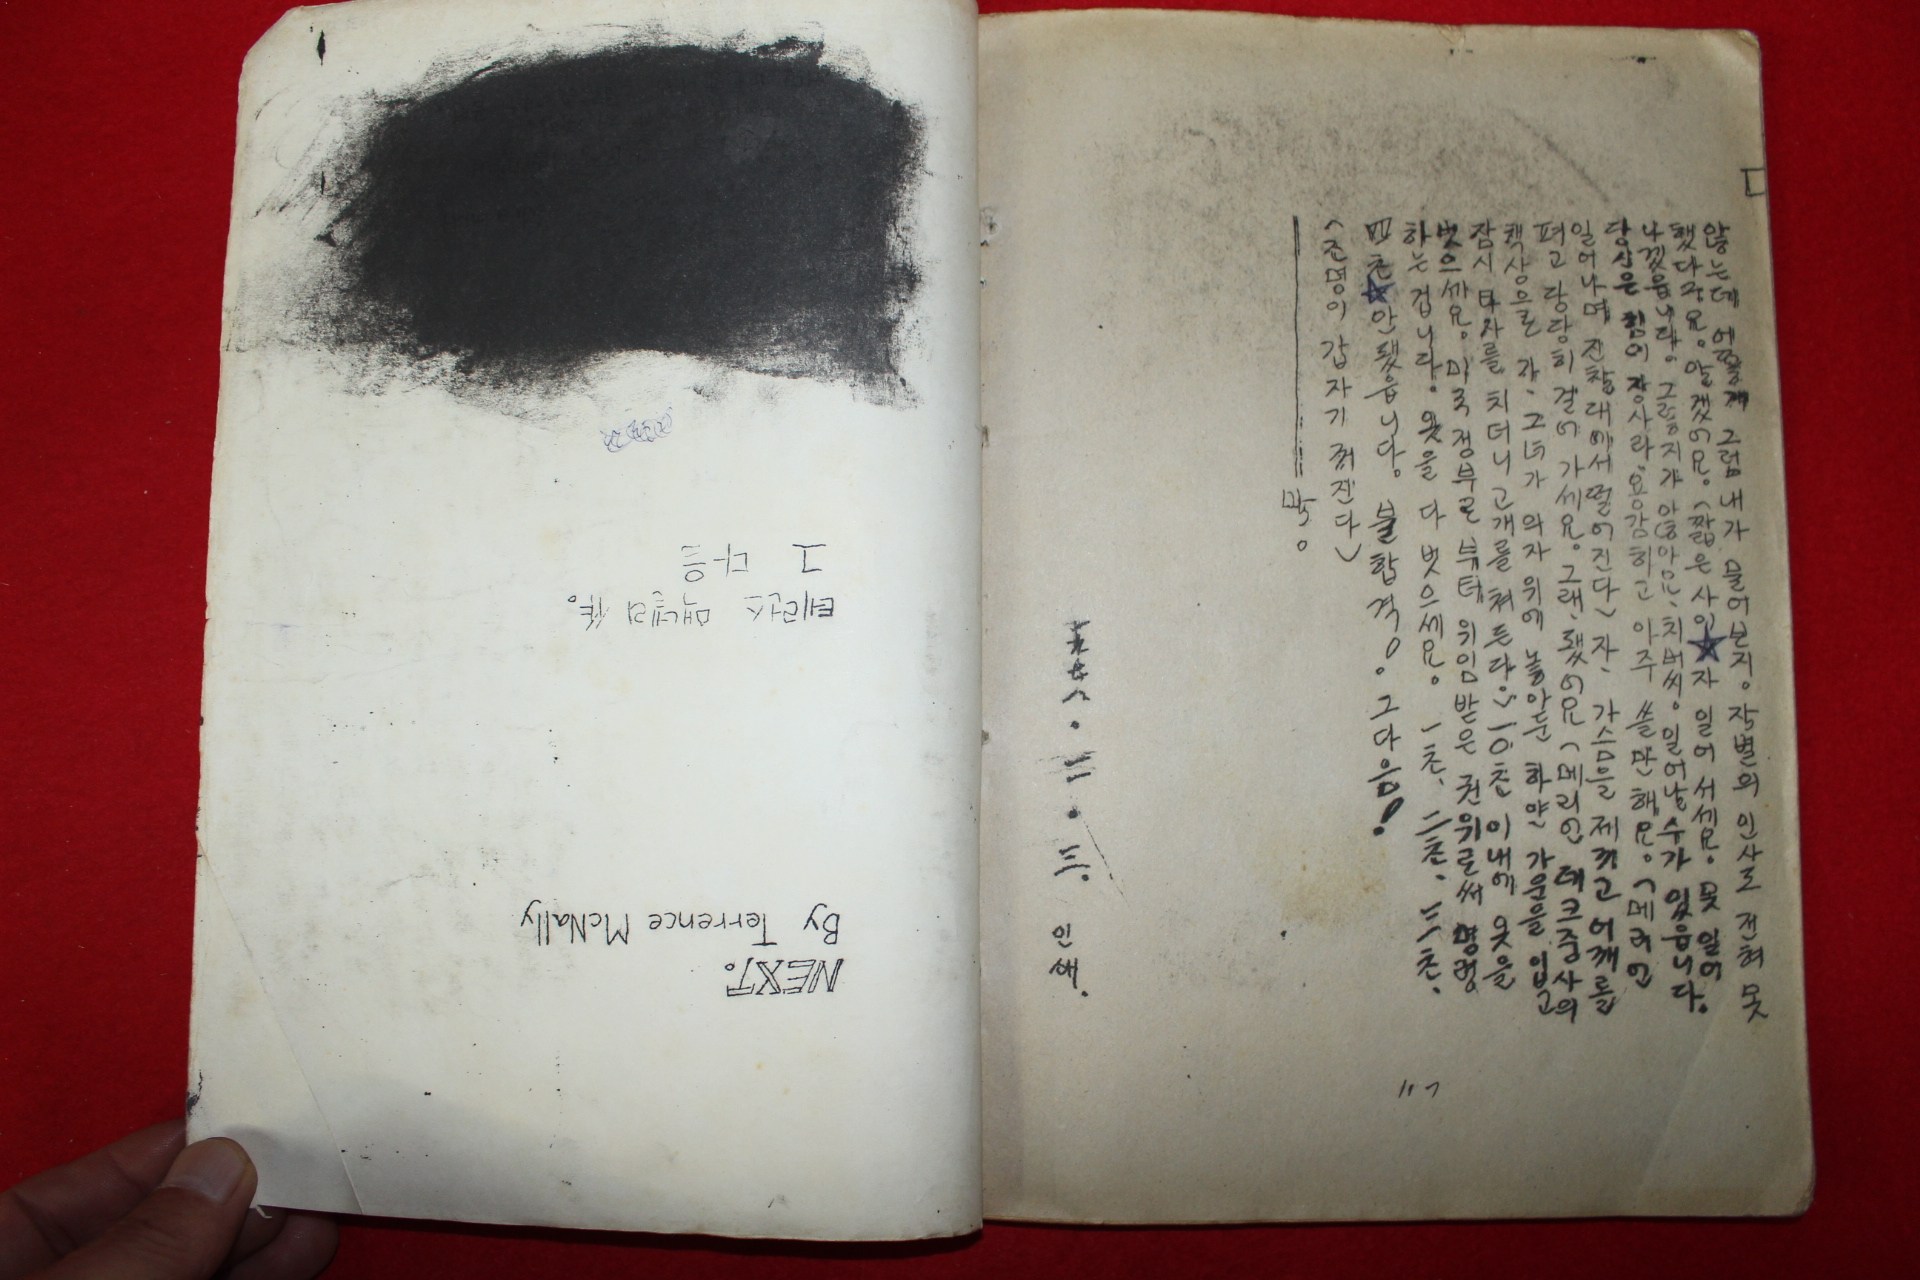 그 다음
테런스 맥넬리 作.
NEXT.
By Terrence McNally
않는데 어떻게 그럼 내가 물어본지. 작별의 인사도 전혀 못
했다구요. 알겠어요. (짧은 사이★자 일어서세요. 못 일어
나겠읍니다. 그렇지가 않아요. 치버씨. 일어날수가 있읍니다.
당신은 힘이 장사라 용감히고 아주 쓸만해요. (메리언
일어나며 진찰대에서 떨어진다) 자, 가슴을 제치고 어깨를
펴고 당당히 걸어 가세요. 그래, 됐어요 (메리언 테크중사의
책상으로 가, 그녀가 의자 위에 놓아둔 하얀 가운을 입고
잠시 타자를 치더니 고개를 쳐든다.) 一0초 이내에 옷을
벗으세요. 미국 정부로 부터 위임받은 권위로써 명령
하는 겁니다. 옷을 다 벗으세요. 一초, 二초, 三초.
四초★안됐읍니다. 불합격! 그다음!
(조명이 갑자기 꺼진다)
막.
二. 三. 인쇄.
117